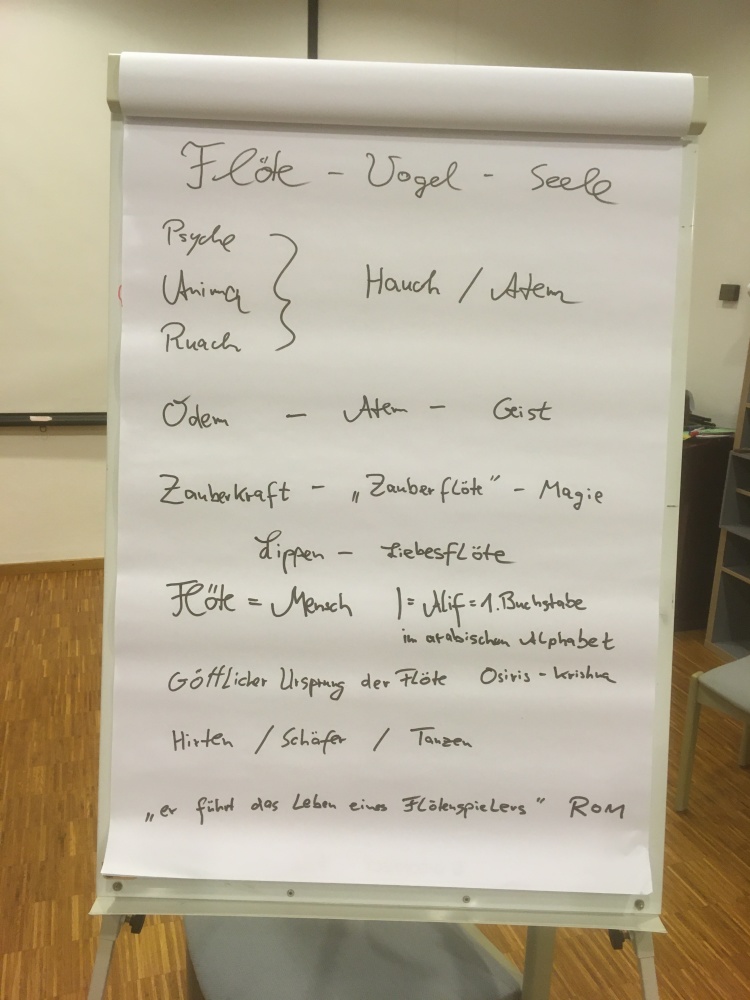 Flöte - Vogel - Seele
Psyche
Anima } Hauch / Atem
Ruach
Odem - Atem - Geist
Zauberkraft - „Zauberflöte" - Magie
Lippen - Liebesflöte
Flöte = Mensch | = Alif = 1. Buchstabe
im arabischen Alphabet
Göttlicher Ursprung der Flöte Osiris - Krishna
Hirten / Schäfer / Tanzen
„er führt das Leben eines Flötenspielers" ROM